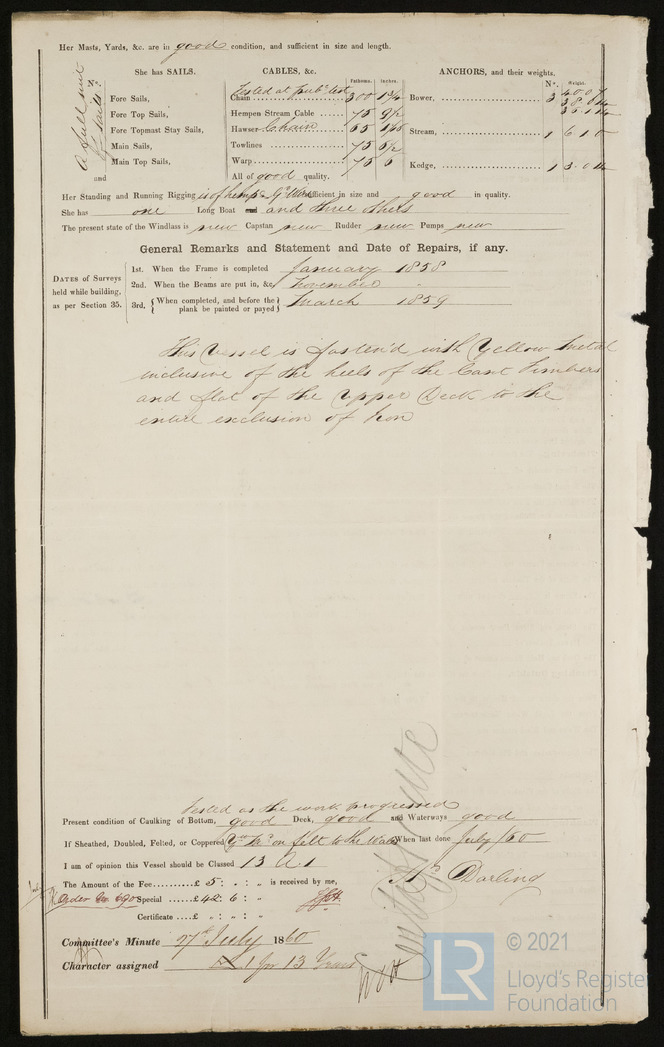 Her Masts, Yards, &c. are in good condition, and sufficient in size and length.
She has SAILS.
A full suit of sails
Fore Sails,
Fore Top Sails,
Fore Topmast Stay Sails,
Main Sails,
Main Top Sails,
and
CABLES, &c.
Fathoms. Inches.
Tested at pub. test
Chain 300 1 3/4
Hempen Stream Cable 75 9 1/2
Hawser Chain 65
Towlines 75 6 1/2
Warp 75 6
All of good quality.
ANCHORS, and their weights.
Nº. Weight.
Bower, 3
Stream, 1 6 1 0
Kedge, 1
Her Standing and Running Rigging is of hemp & sufficient in size and good in quality.
She has one Long Boat and and three others
The present state of the Windlass is new Capstan new Rudder new Pumps new
General Remarks and Statement and Date of Repairs, if any.
DATES of Surveys held while building, as per Section 35.
1st. When the Frame is completed January 1858
2nd. When the Beams are put in, &c. November "
3rd. When completed, and before the plank be painted or payed March 1859
This Vessel is fasten'd with Yellow Metal
inclusive of the heels of the Cant Timbers
and flat of the Upper Deck to the
entire exclusion of Iron
Tested as the work progressed
Present condition of Caulking of Bottom, good Deck, good and Waterways good
If Sheathed, Doubled, Felted, or Coppered on felt to the Wales When last done July /60
I am of opinion this Vessel should be Classed 13 A.1
The Amount of the Fee.........£ 5 : " : " is received by me,
Special .....£ 42 : 6 : "
Certificate ....£ " : " : "
Darling
Committee's Minute 27th July 1860
Character assigned A 1 for 13 Years
LR
© 2021
Lloyd's Register
Foundation